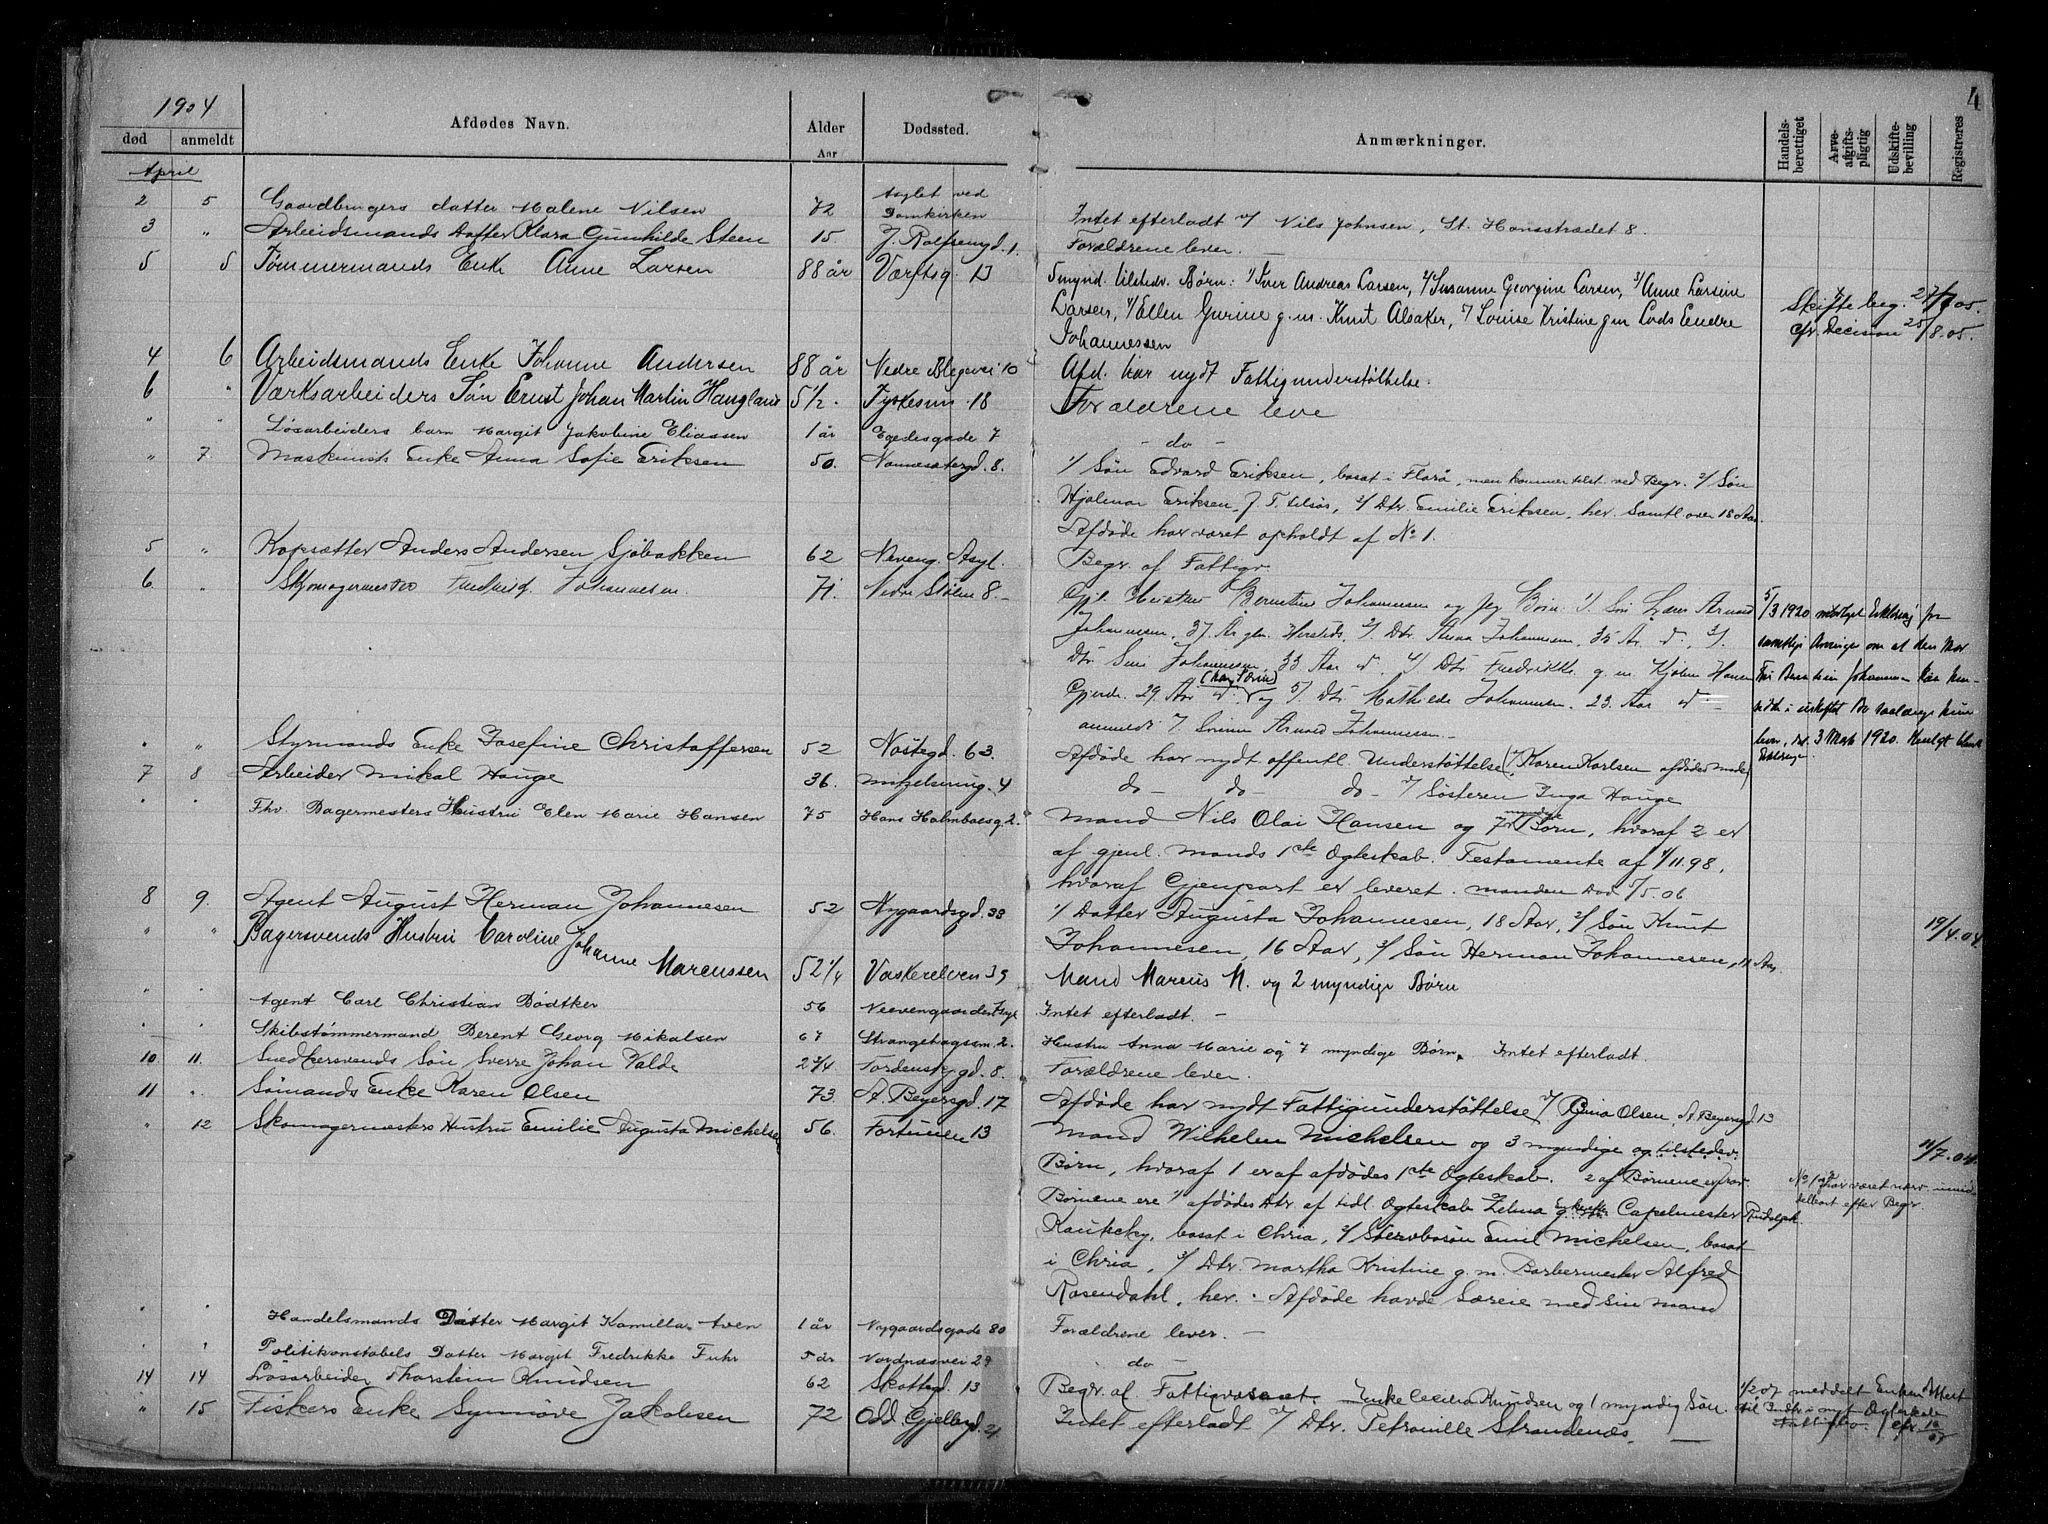 1904
4
død anmeldt Afdødes Navn. Alder Aar Dødssted. Anmærkninger. Handels-berettiget Arve-afgifts-pligtig Udskifte-bevilling Registreres
April
2 5 Gaardbrugers datter Malene Nilsen 72 Asylet ved Domkirken Intet efterladt v/ Nils Johnsen, St. Hansstrædet 8.
3 " Arbeidsmands datter Klara Gunhilde Steen 15. J. Rolfsensgd. 1. Forældrene lever. —
5 5 Tømmermands Enke Anne Larsen 88 år Værftsg. 13 5 mynd. tilstedv. Børn: 1/ Iver Andreas Larsen, 2/ Susanne Georgine Larsen, 3/ Anne Larsine
Larsen, 4/ Ellen Gurine g.m. Knut Alsaker, 5/ Louise Kristine g m Lods Endre
Johannessen
Skifte beg. 27/7 05.
cfr. Decision 25/8.05.
4 6 Arbeidsmands Enke Johanne Andersen 88 år Nedre Blegevei 10 Afd. har nydt Fattigunderstøttelse.
6 " Værksarbeiders Søn Ernst Johan Martin Haugland 5 1/2. Tyskesm. 18 Forældrene leve
" " Løsarbeiders barn Margit Jakobine Eliassen 1 år Egedesgade 7 — do —
" 7. Maskinists Enke Anna Sofie Eriksen 50. Nonnesætergd. 8. 1/ Søn Edvard Eriksen, bosat i Florø, men kommer tilst. ved Begr. 2/ Søn
Hjalmar Eriksen, f. T. tilsøs, 3/ Dtr. Emilie Eriksen, her. Samtl. over 18 Aar.
Afdøde har været opholdt af No 1.
5 " Kapsætter Anders Andersen Sjøbakken 62 Neveng. Asyl. Begr. af Fattigv.
6 " Skomagermester Fredrik Johannesen. 71. Nedre Stølen 8. — Gjl. Hustru Berntine Johannesen og 5 Børn: 1) Søn Lars Arnold
Johannesen, 37 Ar gl. Hersteds, 2/ Dtr. Anna Johannesen, 35 Ar d. 3/.
Dtr. Sine Johannesen, 33 Aar d. 4/ Dtr Fredrikke g. m. Kjøbm Hansen
Gjerde. 29 Aar d. og 5/. Dtr. Mathilde Johannesen. 23. Aar d —
anmeldt v/ Sønnen Arnold Johannesen. —
5/3 1920 mottat Erklæring fra
samtlige Arvinger om at deres Mor
Fru Berntine Johannesen kan hen-
sidde i uskiftet Bo saalænge hun
lever, dat. 3 Mars 1920.
" " Styrmands Enke Josefine Christoffersen 52 Nøstegd. 63. Afdøde har nydt offentl. Understøttelse (v/ Karen Karlsen afdødes moder)
7 8 Arbeider Mikal Hauge 36. 4 do — do — do — v/ Søsteren Inga Hauge
" " Fhv. Bagermesters Hustru Elen Marie Hansen 75 Hans Holmboesg. 2. Mand Nils Olai Hansen og 7 myndige Børn, hvoraf 2 er
af gjenl. Mands 1ste Ægteskab. Testamente af 4/11.98,
hvoraf Gjenpart er leveret. Manden død 5/5.06
8 9. Agent August Herman Johannesen 52 Nygaardsgd. 33 1/ Datter Augusta Johannesen, 18 Aar, 2/ Søn Knut
Johannesen, 16 Aar, 3/ Søn Herman Johannesen, 11 Aar. 19/4.04.
" " Bagersvends Hustru Caroline Johanne Marcussen 52 1/4 Vaskerelven 39 Mand Marcus M. og 2 myndige Børn
" " Agent Carl Christian Bødtker 56 Neevengaarden Asyl Intet efterladt. —
" " Skibstømmermand Berent Georg Mikalsen 67 Strangehagsm. 2. Hustru Anna Marie og 7 myndige Børn. Intet efterladt.
10 11. Snedkersvends Søn Sverre Johan Valde 2 3/4 Tordenskjgd. 8. Forældrene lever.
11 " Sømands Enke Karen Olsen 73 A. Beyersgd. 17 Afdøde har nydt Fattigunderstøttelse v/ Gina Olsen, A. Beyersgd. 13
" 12 Skomagermesters Hustru Emilie Augusta Michelsen 56. Fortunen 13 Mand Wilhelm Michelsen og 3 myndige og tilstedev.
Børn, hvoraf 1 er af afdødes 1ste Ægteskab. 2 af Børnene er frav.
Børnene ere 1/ afdødes Dtr af tidl. Ægteskab Zelma Capelmester Rudolph
Kaukeky, bosat i Chria, 2/ Stervbosøn Emil Michelsen, bosat
i Chria, 3/ Dtr. Martha Kristine g. m. Barbermester Alfred
Rosendahl, her. — Afdøde havde Særeie med sin Mand
11/7.04.
No 1 og 2 har været nærv. umid-
delbart efter Begr
" " Handelsmands Datter Margit Kamilla Aven 1 år Nygaardsgade 80 Forældrene lever. —
" " Politikonstabels Datter Margit Fredrikke Fuhr 5 år Nordnæsvei 29 do —
14 14 Løsarbeider Thorstein Knudsen 62 Skottegd. 13 Begr. af Fattigvæsenet. Enke Cecilia Knudsen og 1 myndig Søn.
" 15 Fiskers Enke Synnøve Jakobsen 72 Odd. Gjelbgd. 21 Intet efterladt v/ Dtr. Petronille Strandenæs. —
1/2 07 meddelt Enken Attest
til Indtr. i nyt Ægteskab